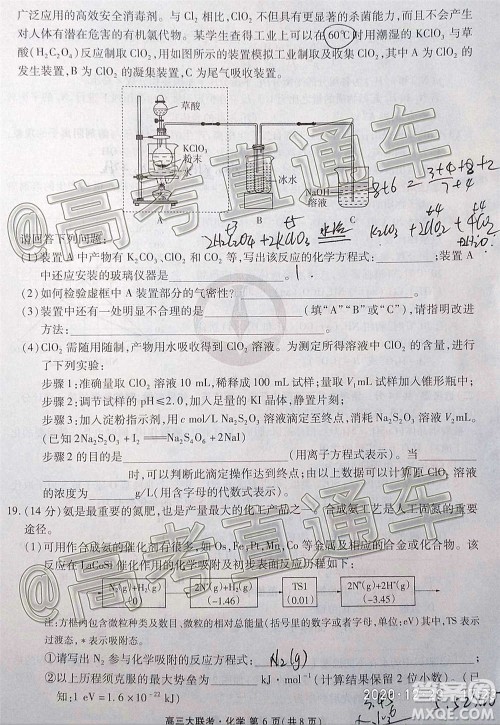 广泛应用的高效安全消毒剂。与 Cl₂ 相比,ClO₂ 不但具有更显著的杀菌能力,而且不会产生
对人体有潜在危害的有机氯代物。某学生查得工业上可以在 60℃时用潮湿的 KClO₃ 与草
酸(H₂C₂O₄)反应制取 ClO₂,用如图所示的装置模拟工业制取及收集 ClO₂,其中 A 为 ClO₂ 的
发生装置,B 为 ClO₂ 的凝集装置,C 为尾气吸收装置。
草酸
KClO₃
粉末
水
冰水
NaOH
溶液
A
B
C
请回答下列问题:
(1)装置 A 中产物有 K₂CO₃、ClO₂ 和 CO₂ 等,写出该反应的化学方程式:;装置 A
中还应安装的玻璃仪器是。
(2)如何检验虚框中 A 装置部分的气密性?
(3)装置中还有一处明显不合理的是(填“A”“B”或“C”),请指明改进
方法:。
(4)ClO₂ 需随用随制,产物用水吸收得到 ClO₂ 溶液。为测定所得溶液中 ClO₂ 的含量,进行
了下列实验:
步骤1:准确量取 ClO₂ 溶液 10 mL,稀释成 100 mL 试样;量取 V₁mL 试样加入锥形瓶中;
步骤2:调节试样的 pH≤2.0,加入足量的 KI 晶体,静置片刻;
步骤3:加入淀粉指示剂,用 c mol/L Na₂S₂O₃ 溶液滴定至终点,消耗 Na₂S₂O₃ 溶液 V₂mL。
(已知 2Na₂S₂O₃+I₂══Na₂S₄O₆+2NaI)
步骤2 的目的是(用离子方程式表示)。当
时,可以判断此滴定操作达到终点;由以上数据可以计算原 ClO₂ 溶液
的浓度为g/L(用含字母的代数式表示)。
19.(14 分)氨是最重要的氮肥,也是产量最大的化工产品之一。合成氨工艺是人工固氮的重要
途径。
(1)可用作合成氨的催化剂有很多,如 Os,Fe,Pt,Mn,Co 等金属及相应的合金或化合物。该
反应在 LaCoSi 催化作用的化学吸附及初步表面反应历程如下:
N₂(g)+H₂(g)
(0)
(-1.46)
TS1
(0.01)
(-3.45)
注:方框内包含微粒种类及数目、微粒的相对总能量(括号里的数字或者字母,单位:eV)其中,TS 表示
过渡态,*表示吸附态。
①请写出 N₂ 参与化学吸附的反应方程式: N₂(g)
②以上历程须克服的最大势垒为kJ/mol(计算结果保留 2 位小数)。(已
知:1 eV=1.6×10⁻²² kJ)
高三大联考·化学 第 6 页(共 8 页)
@高考直通车
@高考直通车
答案圈
MXQE.COM